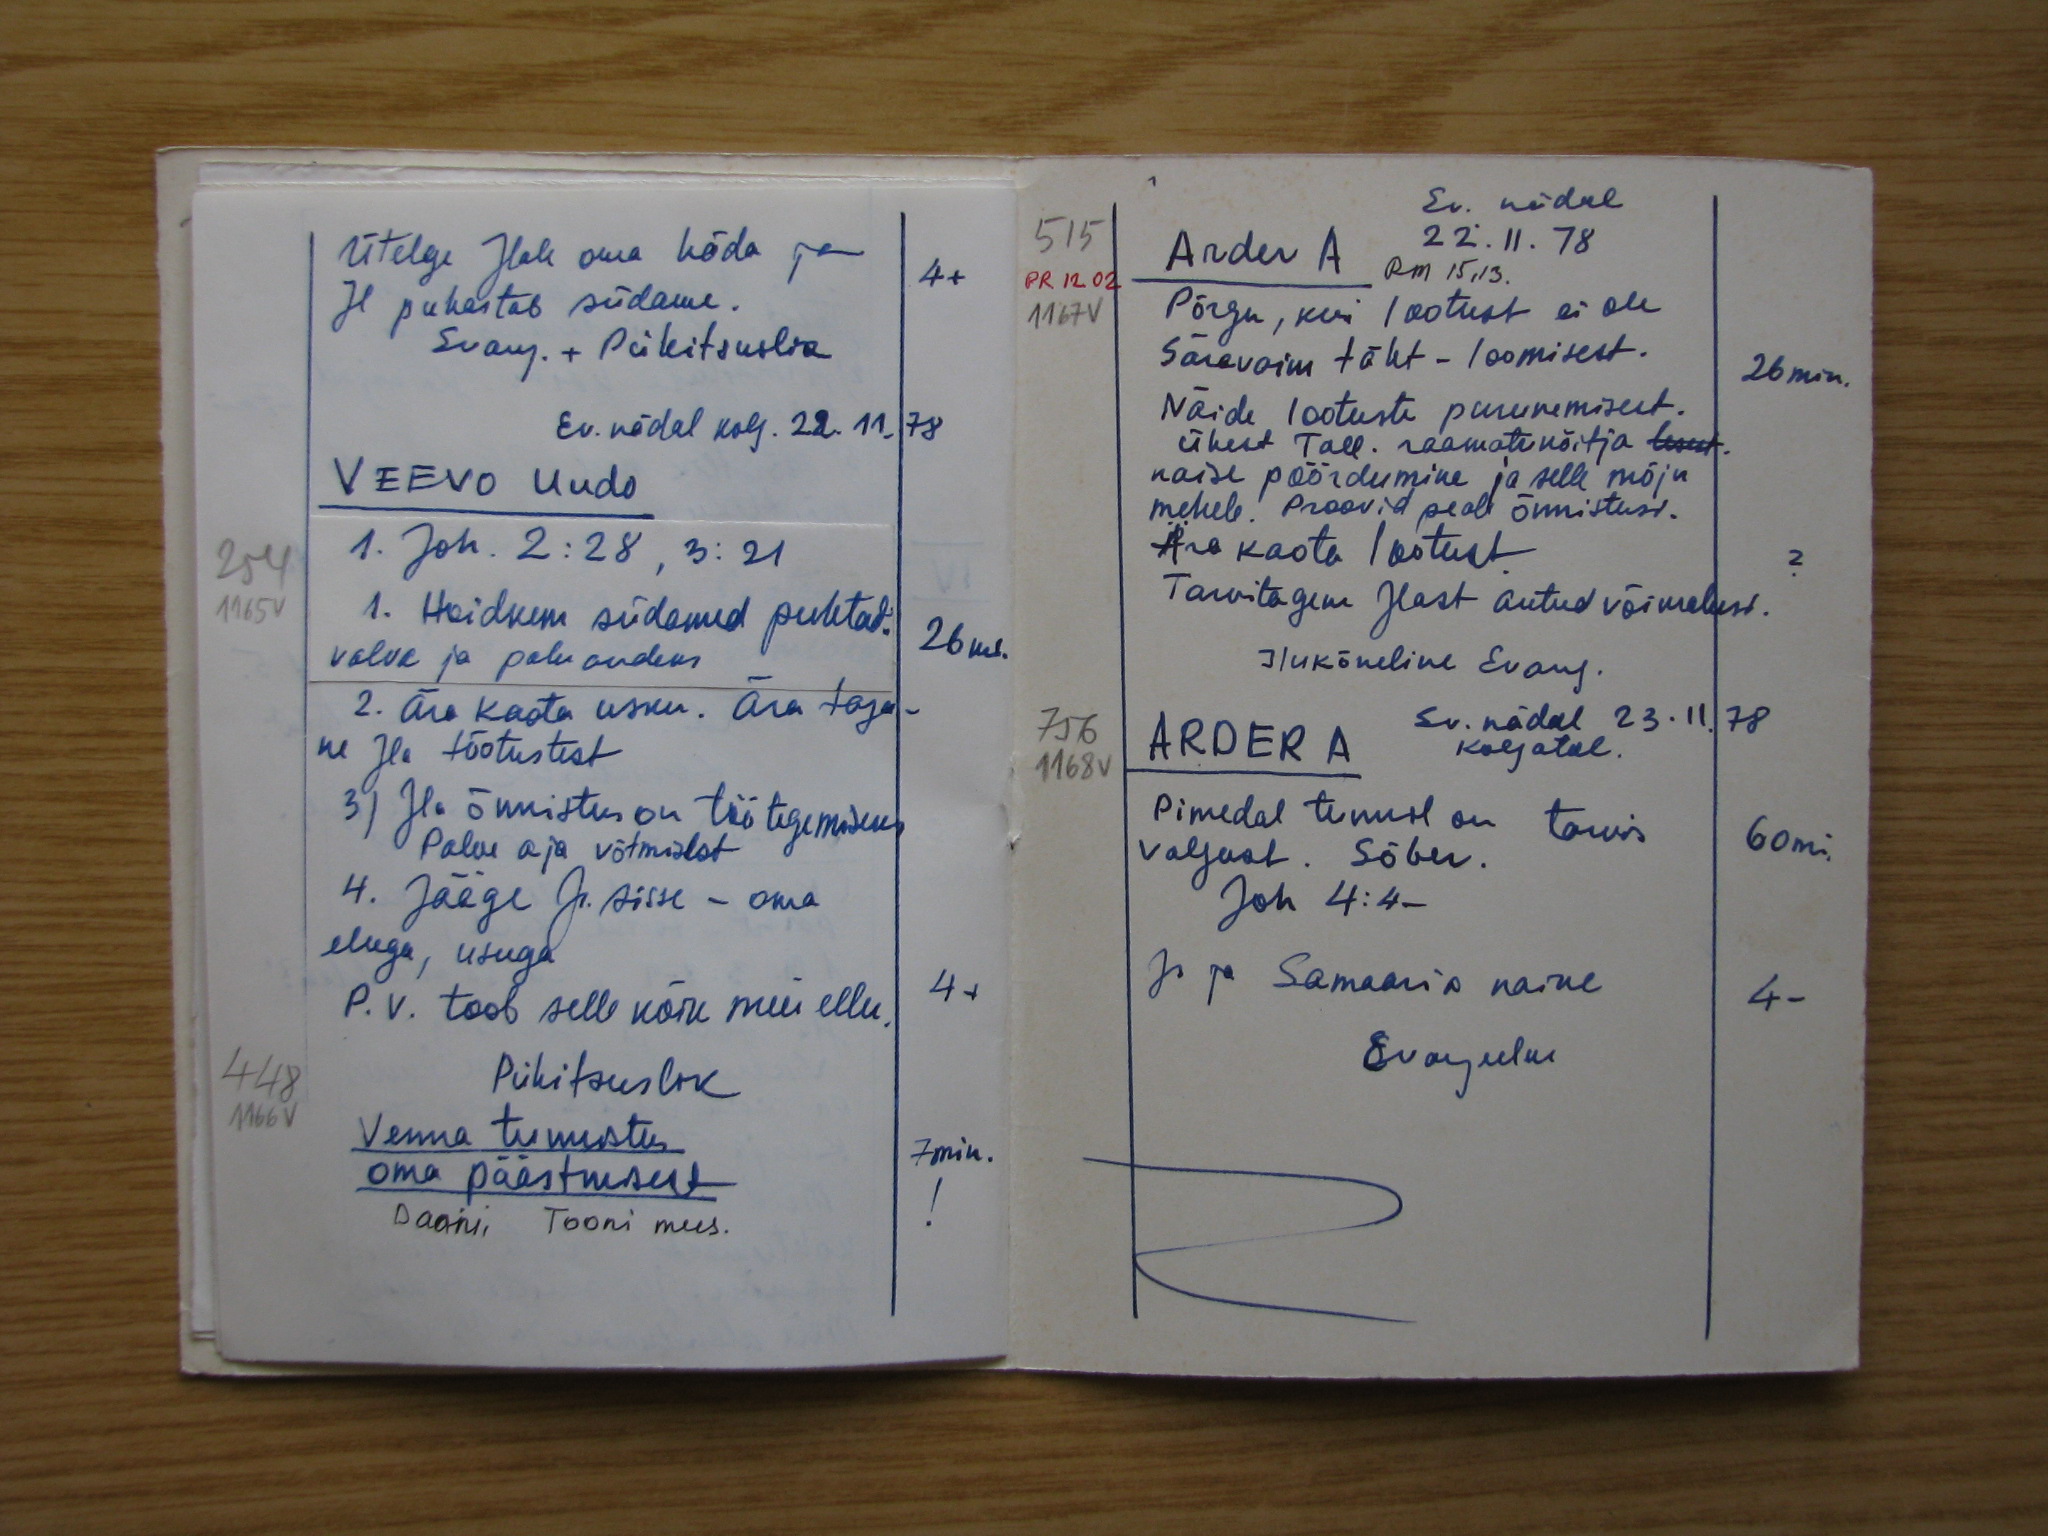 Ütelge Jlale oma häda ja
4+
Jl puhastab südame.
Evang. + Pühitsuslik
Ev. nädal kolg. 22. 11. 78
VEEVO Uudo
254
1165V
1. Joh. 2:28, 3:21
1. Hoidkem südamed puhtad.
valve ja palve andeks
26 m.
2. Ära kaota usku. Ära taga-
ne Jla tõotustest
3) Jla õnnistus on töötegemiseks
Palve aja võtmisest
4. Jääge Js. sisse - oma
eluga, usuga
P.V. toob selle kõik meie ellu.
4+
Pühitsuslik
448
1166V
Venna tunnistus
oma päästmisest
7min.
!
Daani, Tooni mees.
515
PR 12.02
1167V
Ev. nädal
22.11.78
Arder A
RM 15,13.
Põrgu, kus lootust ei ole
Säravaim täht - loomisest.
26 min.
Näide lootuste purunemisest.
Ühest Tall. raamatuköitja
naise pöördumine ja selle mõju
mehele. Proovid peale õnnistusi.
Ära kaota lootust.
?
Tarvitagem Jlast antud võimalusi.
Ilukõneline Evang.
756
1168V
Ev. nädal 23.11.78
ARDER A
Kolgatal.
Pimedal tunnil on tarvis
valgust. Sõber.
60 mi.
Joh 4:4-
Js ja Samaaria naine
4-
Evangeelne